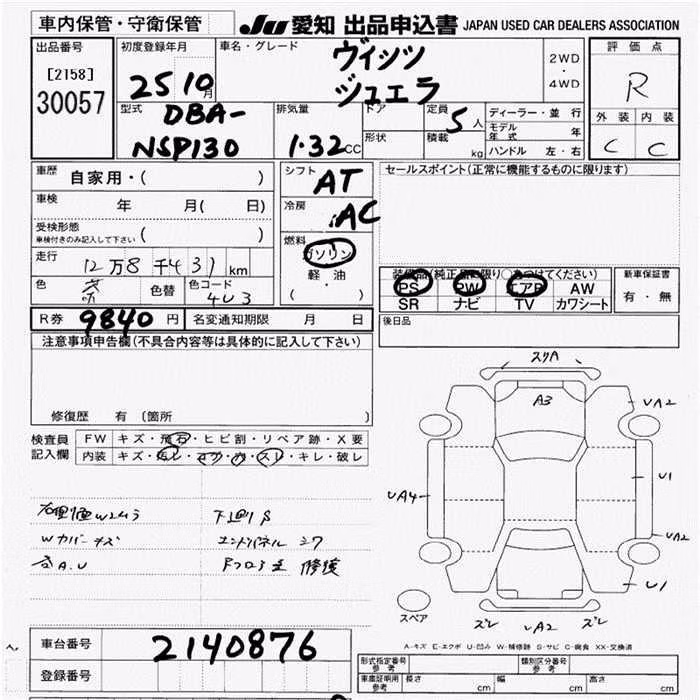 車内保管・守衛保管
JU 愛知 出品申込書 JAPAN USED CAR DEALERS ASSOCIATION
出品番号 初度登録年月 車名・グレード ヴィッツ 2WD・4WD 評価点
[2158] 25 10月 ジュエラ R
30057
型式 DBA-NSP130 排気量 1.32CC ドア 定員 5人 ディーラー・並行
形状 積載 kg モデル年式 年
ハンドル 左・右
外装 内装
C C
車歴 自家用・( ) シフト AT セールスポイント(正常に機能するものに限ります)
車検 年 月( 日) 冷房 AC
受検形態 ( )
車検付きのみ記入して下さい
燃料 ガソリン
軽・油
( ・ )
走行 12万8千431km
色 茶 色替 色コード 4U3
装備品(純正品に限り○をつけてください) 新車保証書
PS PW エアB AW 有・無
SR ナビ TV カワシート
R券 9840円 名変通知期限 月 日 後日品
注意事項申告欄(不具合内容等は具体的に記入して下さい)
修復歴 有(箇所
検査員 FW キズ・飛石・ヒビ割・リペア跡・X要
記入欄 内装 キズ・汚レ・コゲ・穴・スレ・キレ・破レ
下廻りS
Wカバーキズ エンドパネル
A.U 修復
スリA
A3
UA2
UA4
U1
UA2
U1
スペア
ズレ UA2 ズレ
A-キズ E-エクボ U-凹み W-補修跡 S-サビ C-腐食 XX-交換済
車台番号 2140876
登録番号
形式指定番号 参考 類別区分番号 参考
車庫証明用 参考 長さ cm 幅 cm 高さ cm